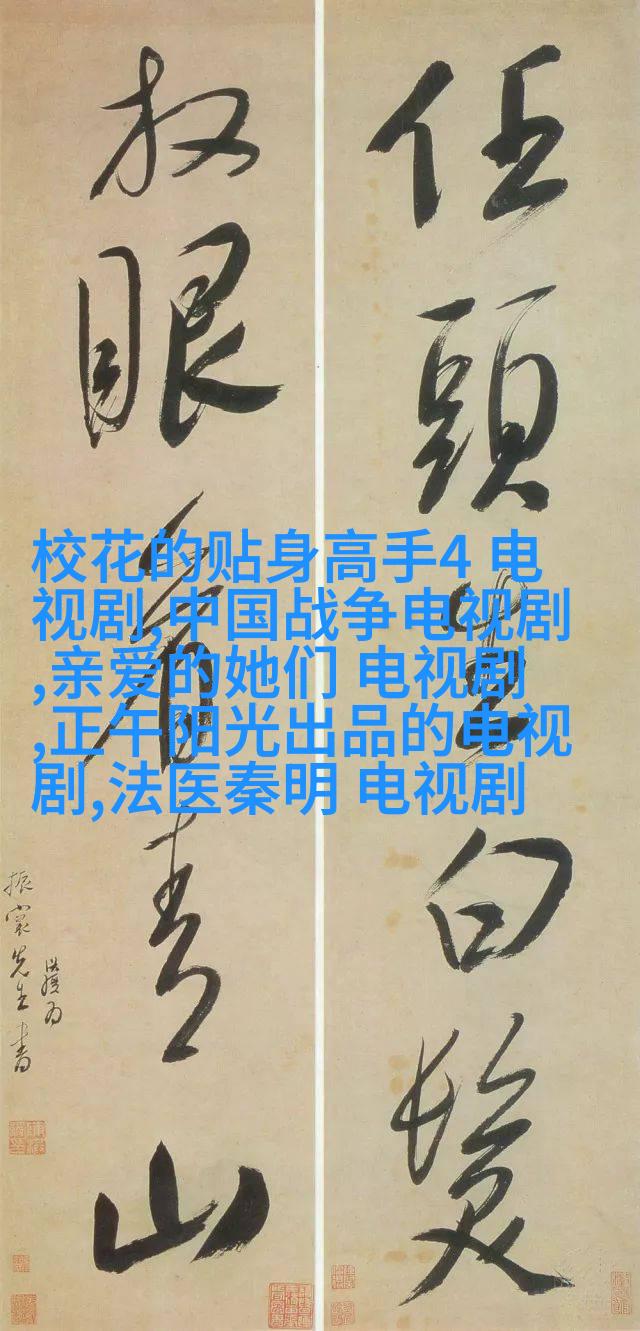 任頭生白髮
放眼看青山
振裳先生書
校花的贴身高手4 电
视剧,中国战争电视剧
,亲爱的她们 电视剧
,正午阳光出品的电视
剧,法医秦明 电视剧